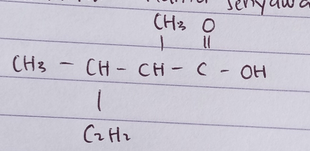 senyawa
CH3 O
CH3 - CH - CH - C - OH
C2H2